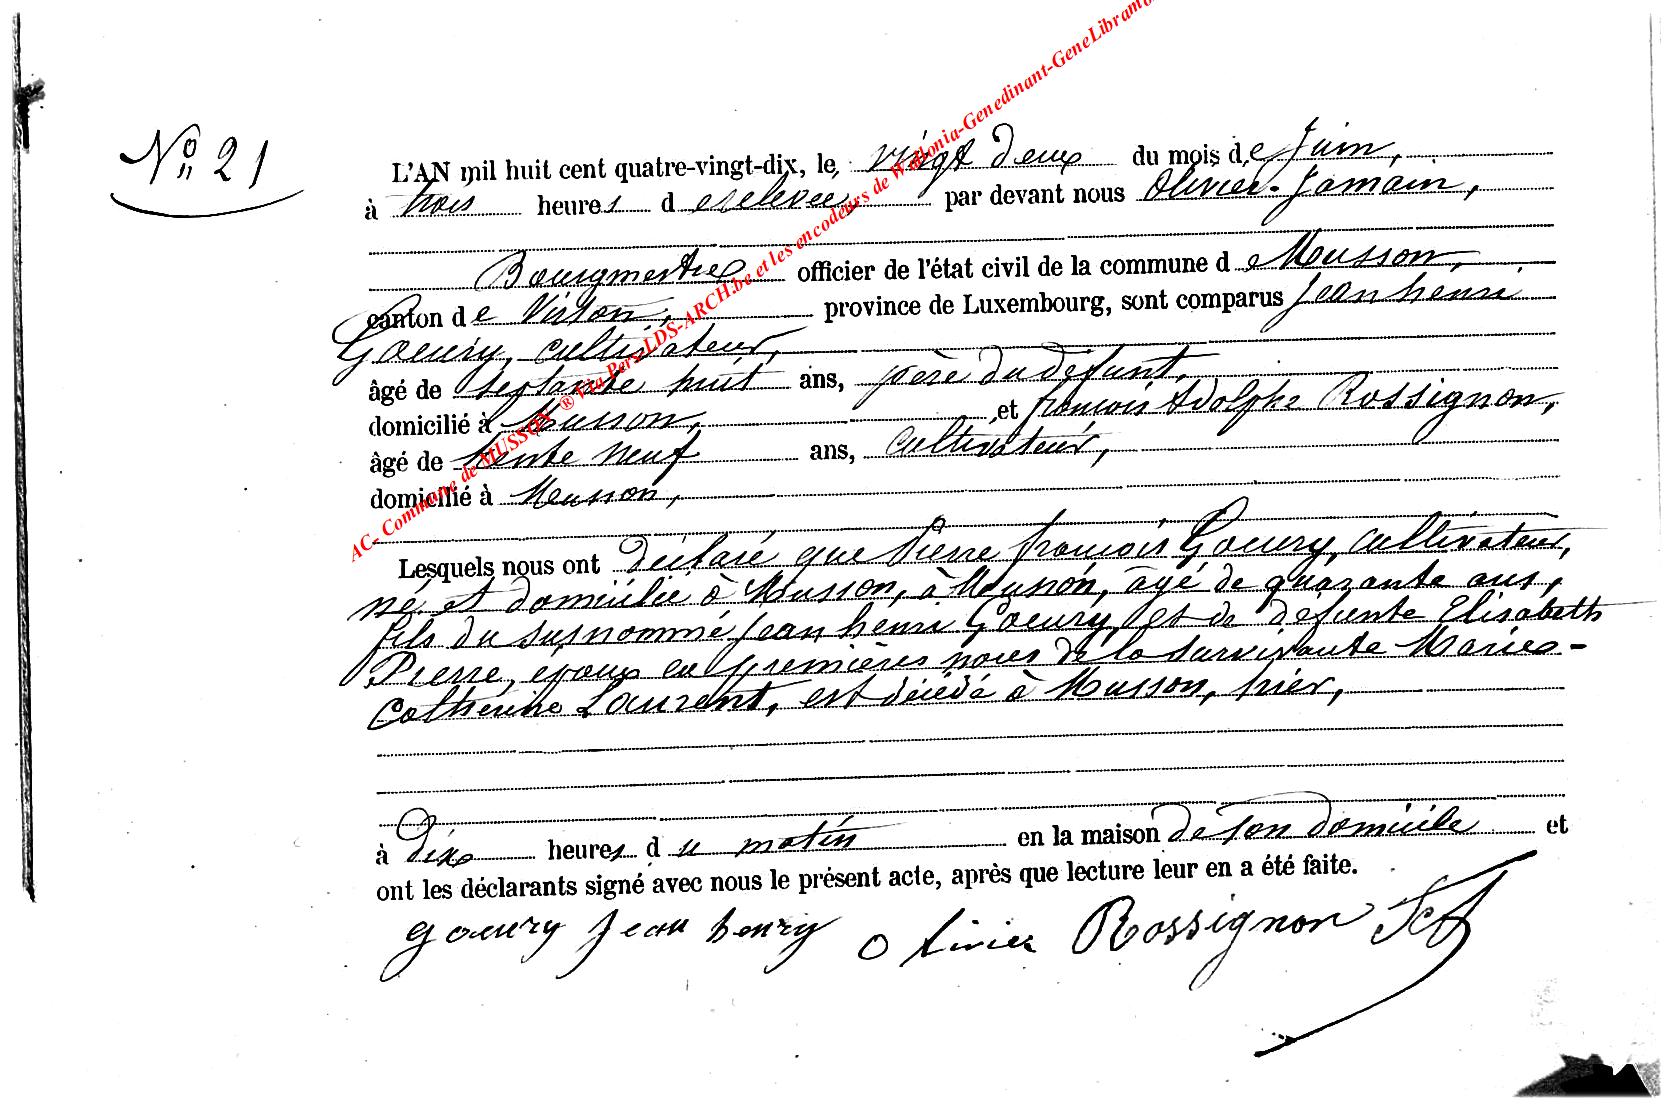 No 21
L'AN mil huit cent quatre-vingt-dix, le vingt deux du mois de Juin,
à trois heures de relevée, par devant nous Olivier Jamain,
Bourgmestre officier de l'état civil de la commune de Musson,
canton de Virton, province de Luxembourg, sont comparus Jean henri
Goeury, cultivateur,
âgé de septante huit ans, père du defunt,
domicilié à Musson, et françois Adolphe Rossignon,
âgé de trente neuf ans, cultivateur,
domicilié à Musson,
Lesquels nous ont déclaré que Pierre françois Goeury, cultivateur,
né et domicilié à Musson, à Musson, âgé de quarante ans,
fils du susnommé Jean henri Goeury, et de defunte Elisabeth
Pierre, époux en premières noces de la survivante Marie-
Catherine Laurent, est décédé à Musson, hier,
à dix heures du matin en la maison de son domicile et
ont les déclarants signé avec nous le présent acte, après que lecture leur en a été faite.
goeury jean henry Olivier Rossignon
AC- Commune de MUSSON ® Via Pers-LDS-ARCH.be et les encodeurs de Wallonia-Genedinant-GeneLibramo